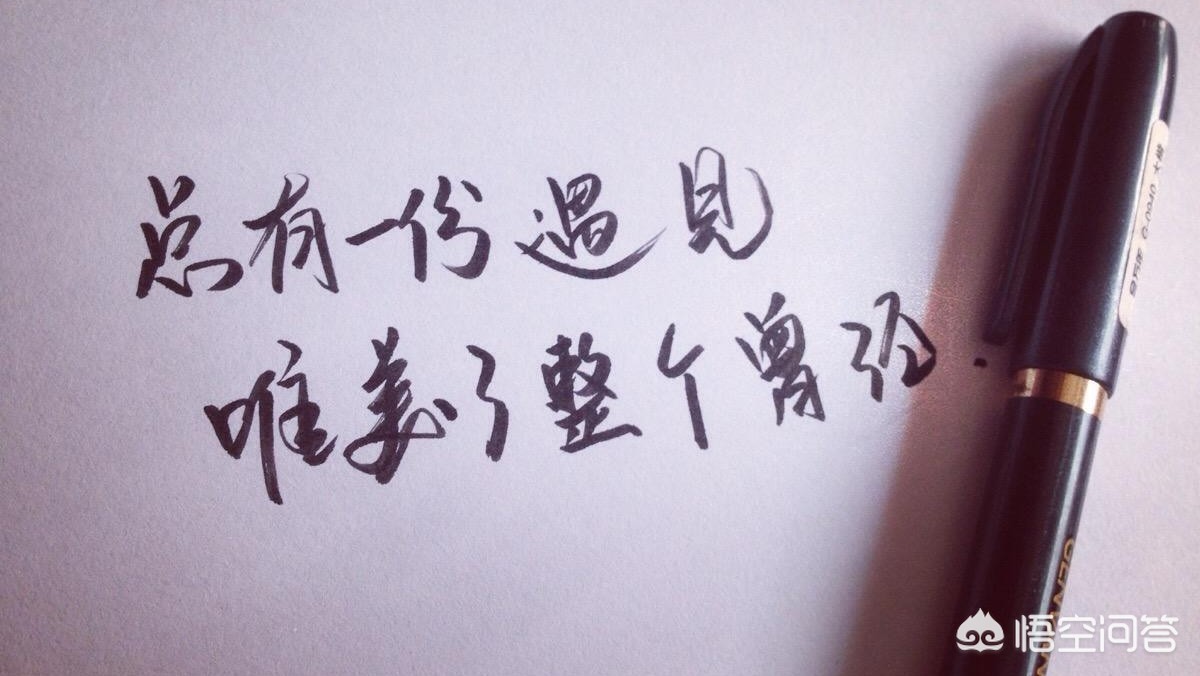 总有一份遇见
唯美了整个曾经.
悟空问答